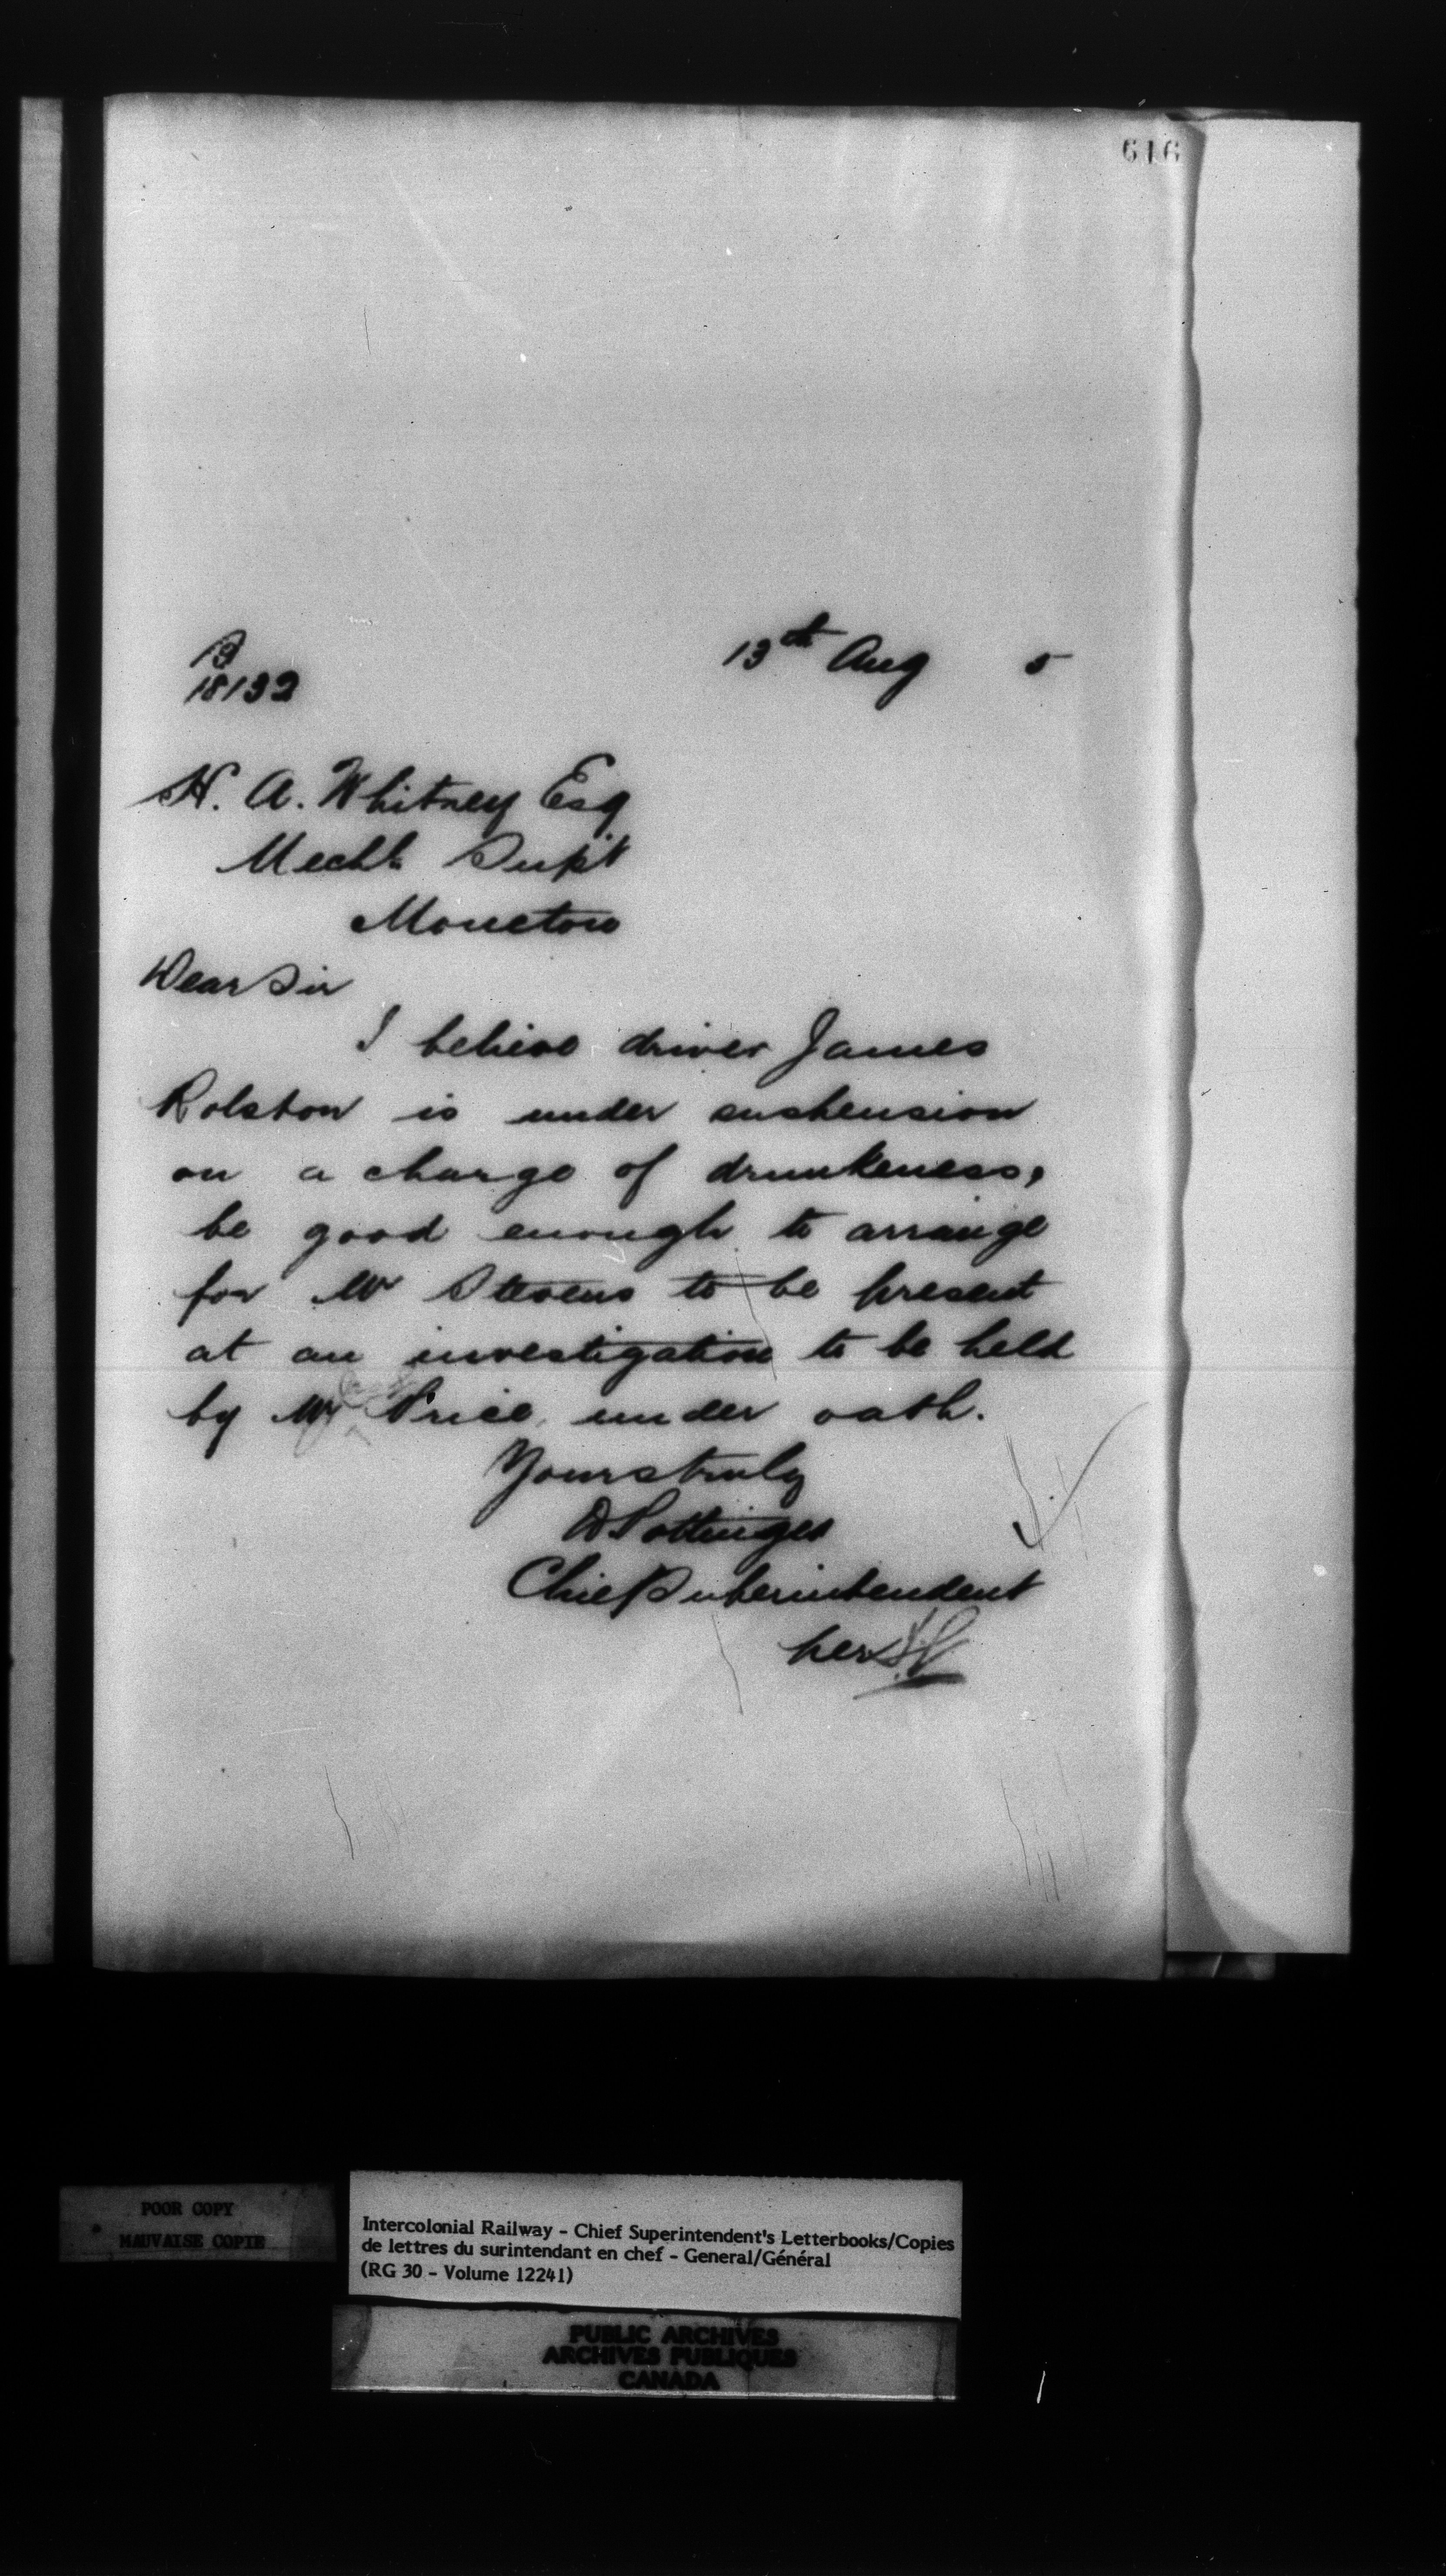 616
13th Aug 5
18132
H. A. Whitney Esq
Mechl Supt
Moncton
Dear Sir
I believe driver James
Rolston is under suspension
on a charge of drunkeness,
be good enough to arrange
for Mr Stevens to be present
at an investigation to be held
by Mr Price under oath.
Yours truly
D Pottinger
Chief Superintendent
per
POOR COPY
MAUVAISE COPIE
Intercolonial Railway - Chief Superintendent's Letterbooks/Copies
de lettres du surintendant en chef - General/Général
(RG 30 - Volume 12241)
PUBLIC ARCHIVES
ARCHIVES PUBLIQUES
CANADA